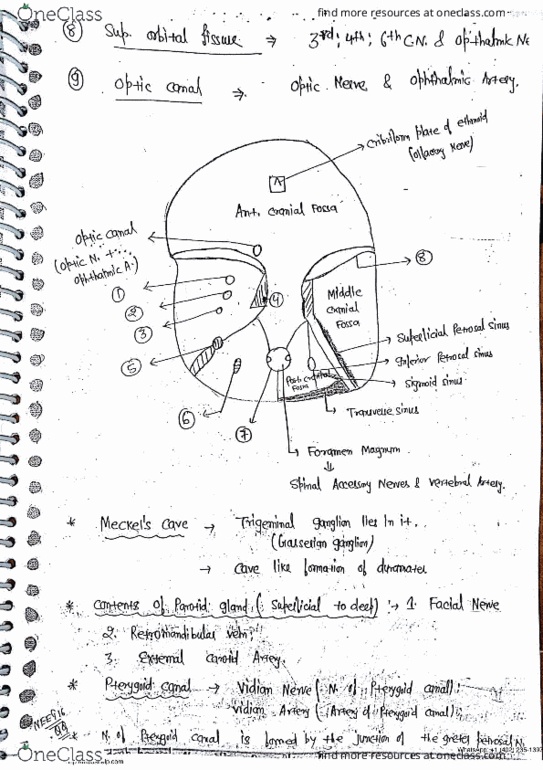 OneClass
find more resources at oneclass.com
⑧ Sup. orbital fissure ⇒ 3rd; 4th; 6th C.N. & ophthalmic Nr
⑨ optic canal → optic Nerve & ophthalmic Artery.
cribriform plate of ethmoid
(olfactory nerve)
Ant. cranial Fossa
optic canal
(optic N. +
ophthalmic A.)
⑧
①
②
③
④
Middle
cranial
Fossa
Superficial Petrosal sinus
Inferior Petrosal sinus
Sigmoid sinus
⑤
Post cranial
Fossa
Transverse sinus
⑥
⑦
Foramen Magnum
Spinal Accessory Nerves & vertebral Artery.
* Meckel's cave → Trigeminal ganglion lies in it.
(Gasserian ganglion)
→ cave like formation of duramater
* contents of Parotid gland (: Superficial to deep) :→ 1. Facial Nerve
2. Retromandibular vein
3. External carotid Artery.
* Pterygoid canal → Vidian Nerve (: N. of Pterygoid canal)
Vidian Artery (: Artery of Pterygoid canal)
* N. of Pterygoid canal is formed by the junction of the greter petrosal N.
OneClass
find more resources at oneclass.com